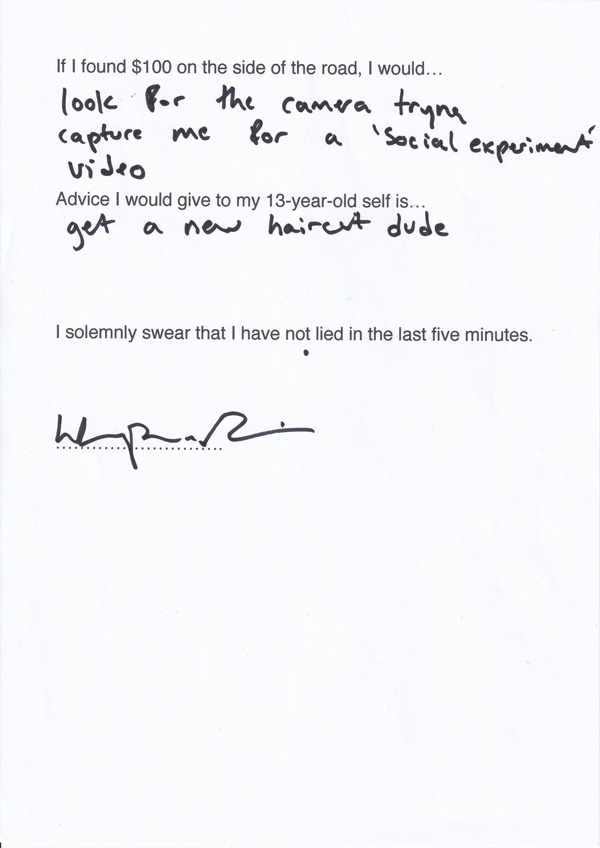 If I found $100 on the side of the road, I would...
look for the camera tryna
capture me for a 'social experiment'
video
Advice I would give to my 13-year-old self is...
get a new haircut dude
I solemnly swear that I have not lied in the last five minutes.